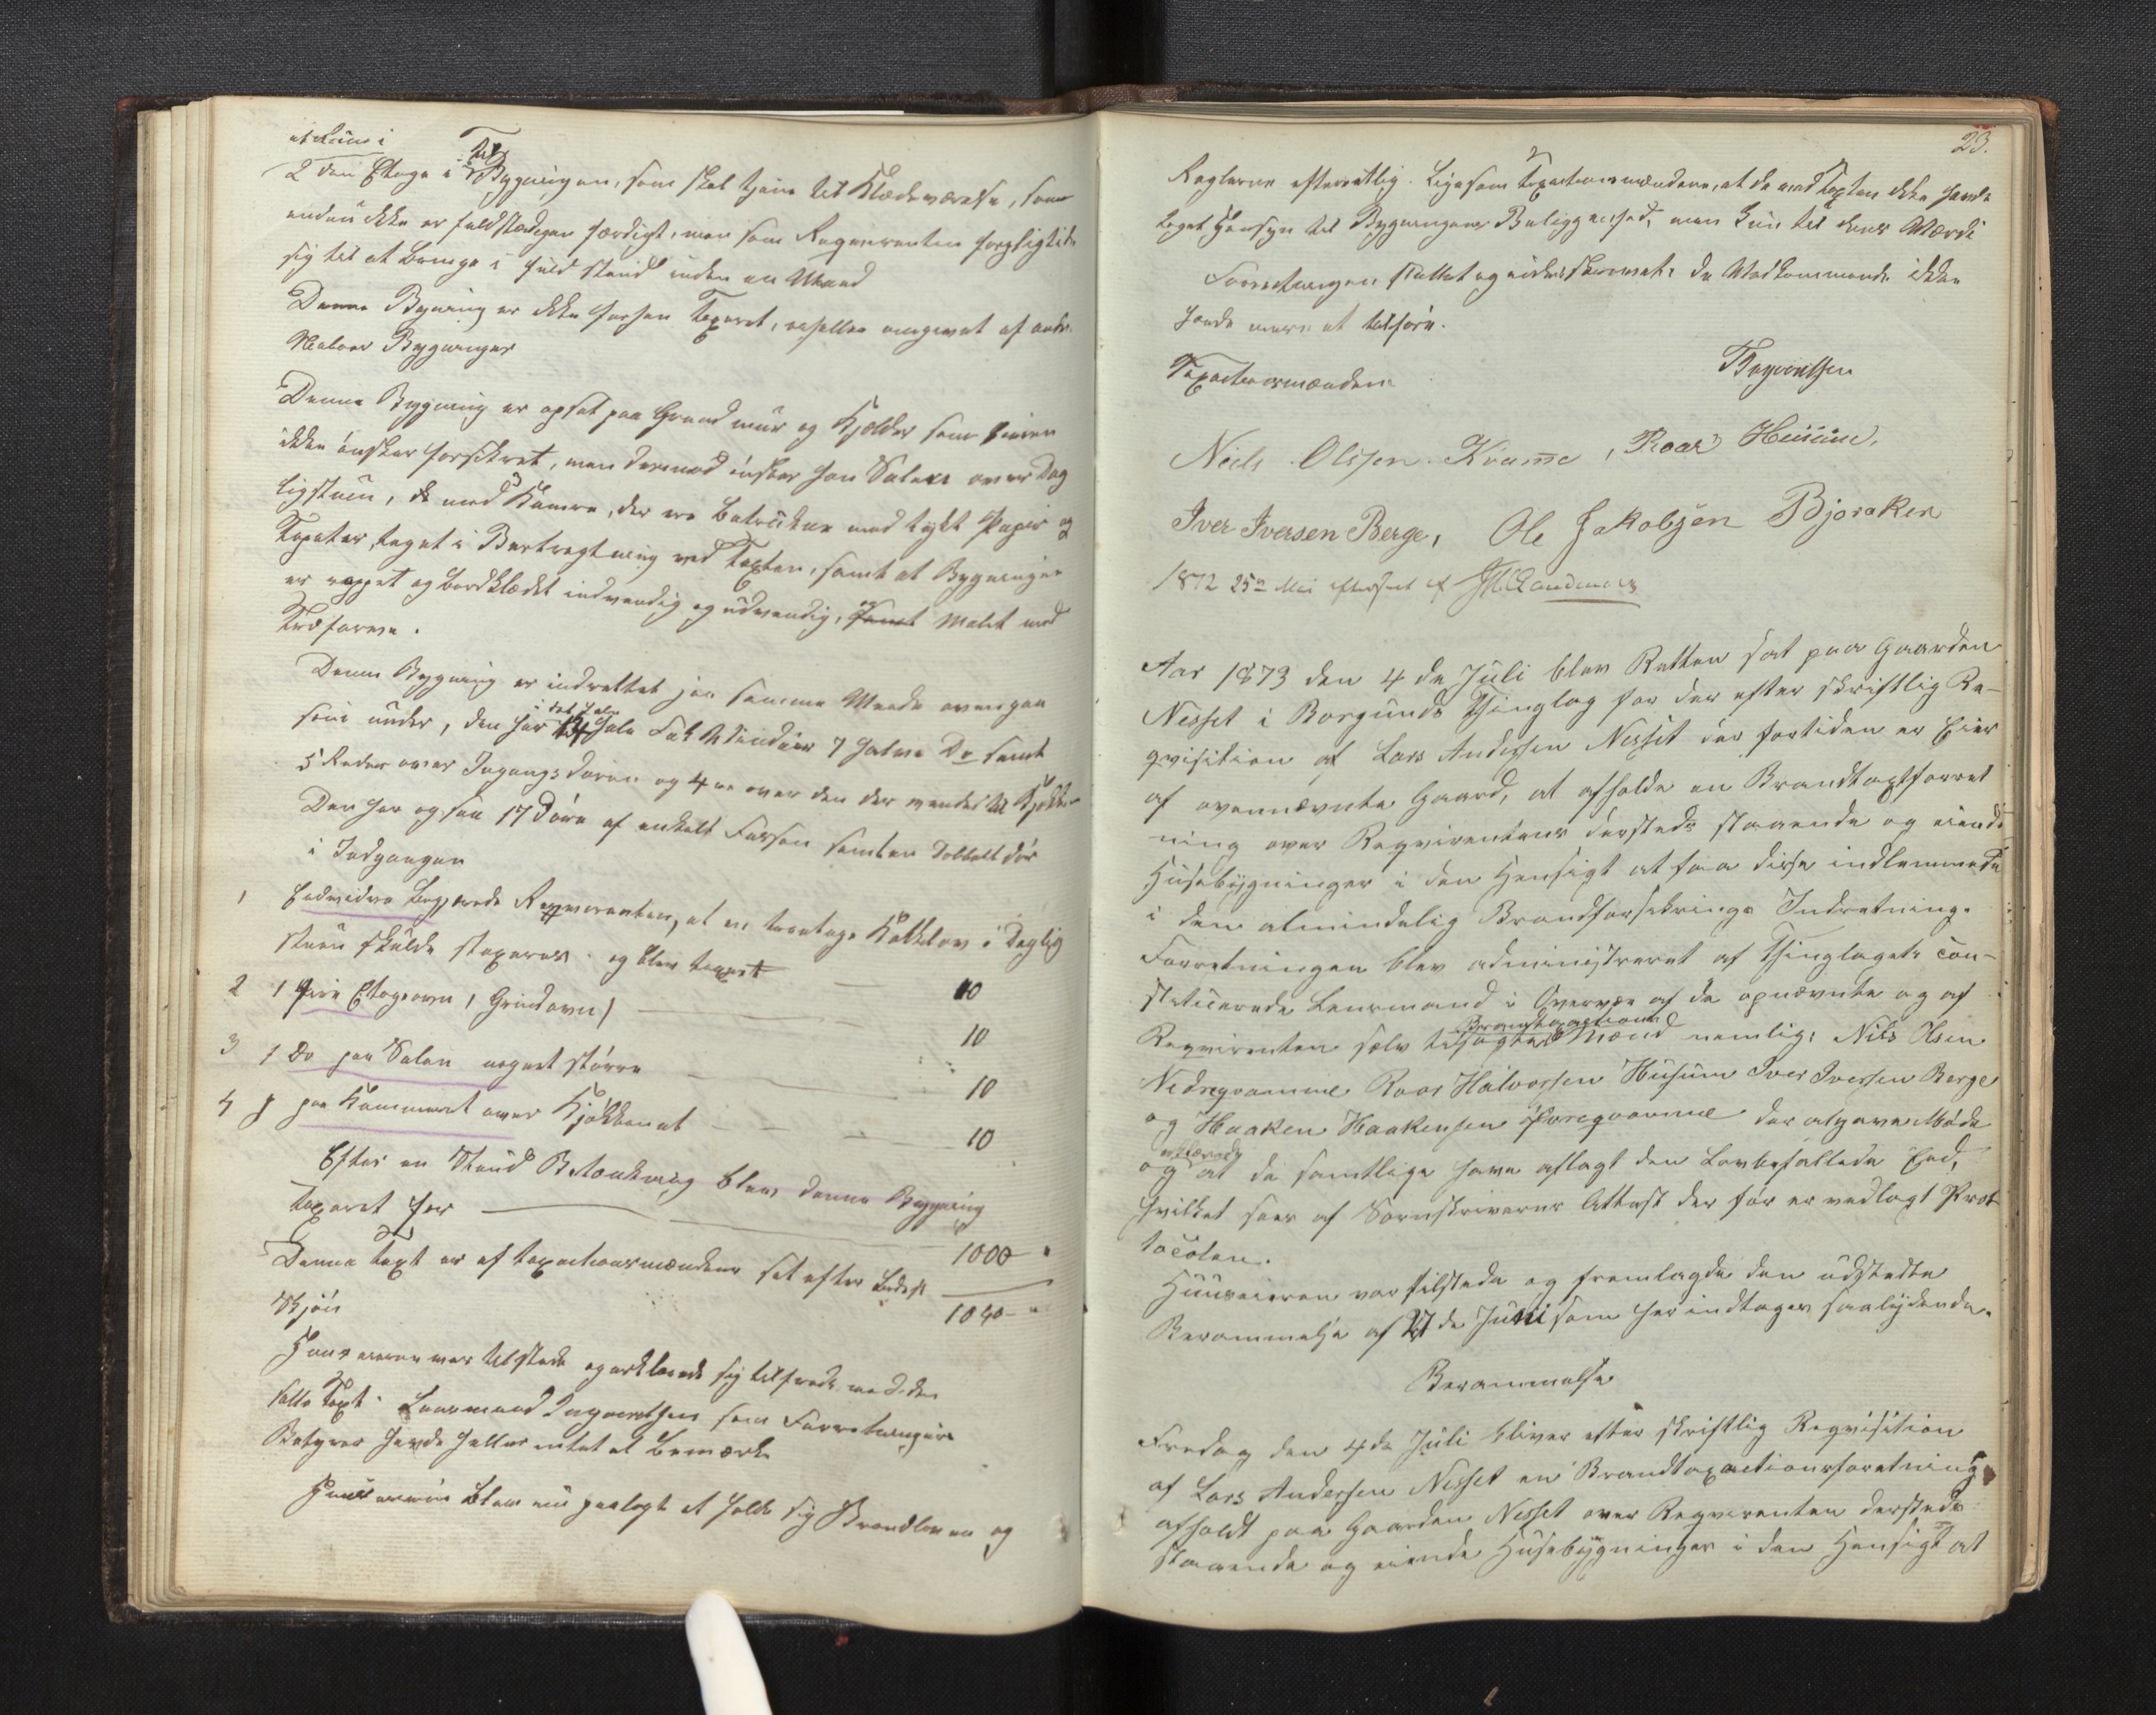 et Rum i
2den Etage i Bygningen, som skal tjene til Klædeværelse, som
endnu ikke er fuldstændigen færdigt, men som Requirenten forpligtede
sig til at bringe i fuld stand inden en Maand
Denne Bygning er ikke forhen Taxeret, eiheller omgivet af andre
Naboer Bygninger
Denne Bygning er opsat paa Grundmur og Kjelder som Eieren
ikke ønsker forsikret, men derimod ønsker han Salen over Dag
ligstuen, med Kamre, der ere betrukne med tykt Papir og
Tapeter, taget i Bertragtning ved Taxten, samt at Bygningen
er pappet og bordklædt indvendig og udvendig, og malet med
Træfarve.
Denne Bygning er indrettet paa samme Maade ovenpaa
som under, den har i det hele 13 hele Fak Vinduer 7 halve Do samt
5 Ruder over Ingangsdøren og 4re over den der vender til Kjøkken
Den har ogsaa 17 Døre af enkelt Facon samt en Dobbelt dør
i Indgangen
1 Endvidere begjærede Requirenten, at en treetages Kakkelovn i Daglig
stuen skulde taxeres. og blev taxert 10
2 1 Etageovn, Grindovn) 10
3 1 Do paa Salen noget større 10
4 1 paa Kammeret over Kjøkkenet 10
Efter en Stund Betænkning blev denne Bygning
taxeret for 1000 "
Denne Taxt er af taxationsmændene sat efter bedste
Skjøn 1040 "
Huus eieren var tilstede og erklærede sig tilfreds med den
satte Taxt. Lensmand Ingvoldsen som Forretningens
Bestyrer havde heller intet at bemærke
Huuseieren blev nu paalagt at holde sig Brandloven og
23.
Reglerne efterretlig. Ligesom Taxationsmændene, at de ved Taxten ikke havde
taget Hensyn til Bygningens Beliggenhed, men kun til dens Værdi
Forretningen sluttet og underskrevet, da Vedkommende ikke
havde mere at tilføre.
Taxationsmændene
Niels Olssen Kvamme, Roar Husum,
Iver Iversen Berge, Ole Jakobsen Bjoraker
1872 25de Mai efterseet af
Aar 1873 den 4de Juli blev Retten sat paa Gaarden
Nesset i Borgunds Thinglag for der efter skriftlig Re-
qvisition af Lars Andersen Nesset der fortiden er Eier
af ovennævnte Gaard, at afholde en Brandtaxtforret
ning over Reqvirentens dersteds staaende og eiende
Husebygninger i den Hensigt at faa disse indlemmede
i den almindelig Brandforsikrings Indretning.
Forretningen blev administreret af Thinglagets con-
stituerede Lensmand i Overvær af de opnævnte og af
Reqvirenten selv tilsagte Brandtaxations Mænd nemlig: Nils Olsen
Nedrequamme Roar Halvorsen Husum Iver Iversen Berge
og Haaken Haakensen Øvrequamme der afgave Møde
og at de samtlige have aflagt den Lovbefallede Eed,
hvilket sees af Sorenskriverens Attest der før er vedlagt Prot
tocolen.
Huuseieren var tilstede og fremlagde den udstedte
Berammelse af 27de Juni som her indtages saalydende.
Berammelse
Fredag den 4de Juli bliver efter skriftlig Reqvisition
af Lars Andersen Nesset en Brandtaxationsforretning
afholdt paa Gaarden Nesset over Reqvirenten dersteds
staaende og eiende Husebygninger i den Hensigt at